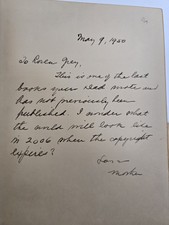 May 9, 1950
To Rosen Grey,
This is one of the last
books ever
has not previously been
published. I wonder what
the world will look like
in 2006 when the copyright
expires?
Love